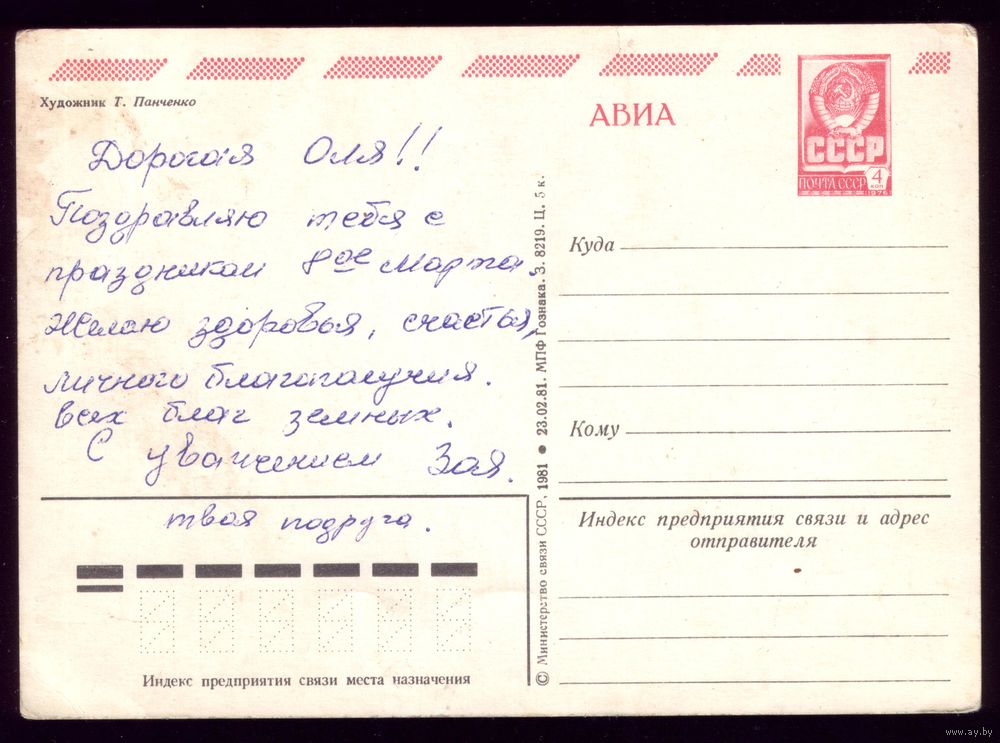 Художник Т. Панченко
АВИА
СССР
ПОЧТА СССР 4 КОП
1976
Дорогая Оля!!
Поздравляю тебя с
праздником 8ое марта.
Желаю здоровья, счастья,
личного благополучия.
всех благ земных.
С уважением Зоя.
твоя подруга.
Индекс предприятия связи места назначения
© Министерство связи СССР, 1981 • 23.02.81. МПФ Гознака. З. 8219. Ц. 5 к.
Куда
Кому
Индекс предприятия связи и адрес
отправителя
www.ay.by